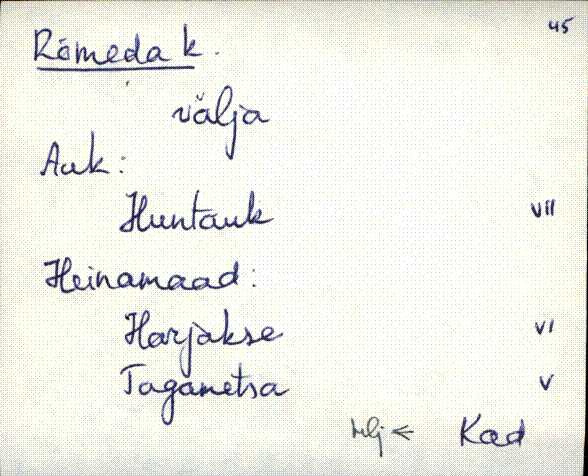 45
Rõmeda k.
välja
Auk:
Huntauk VII
Heinamaad:
Harjakse VI
Tagametsa V
← Kad